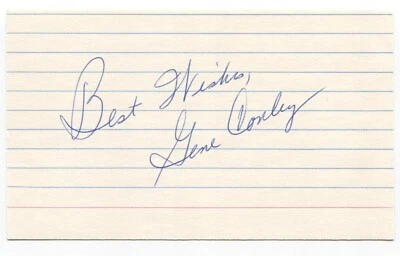 Best Wishes,
Gene Conley